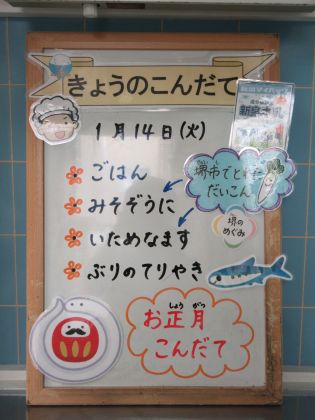 きょうのこんだて
1月14日(火)
ごはん
みそぞうに
いためなます
ぶりのてりやき
堺市でとれた
だいこん
堺の
めぐみ
しょう がつ
お正月
こんだて